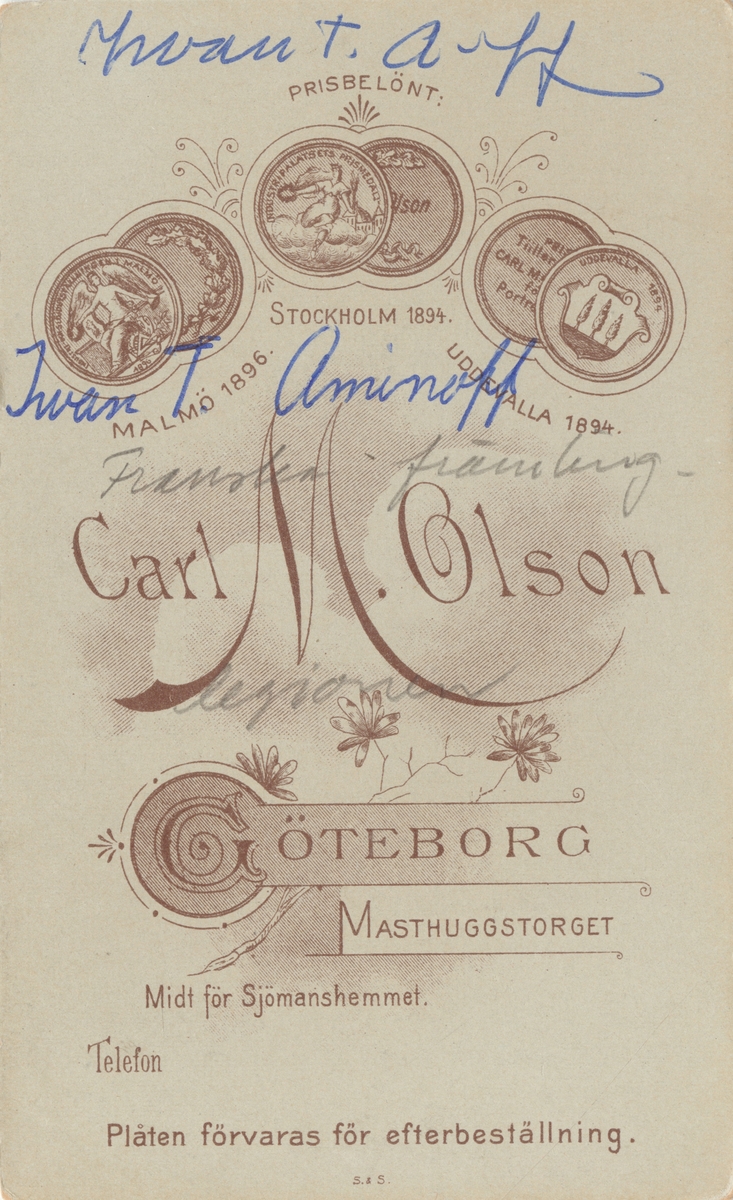 Iwan T. A-ff
PRISBELÖNT:
INDUSTRIPALATSETS PRISMEDALJ
lson
UDDEVALLA 1894
CARL M.
STOCKHOLM 1894.
MALMÖ 1896.
UDDEVALLA 1894.
Iwan T. Aminoff
Franska främling-
Carl M. Olson
legionen
GÖTEBORG
MASTHUGGSTORGET
Midt för Sjömanshemmet.
Telefon
Plåten förvaras för efterbeställning.
S. & S.